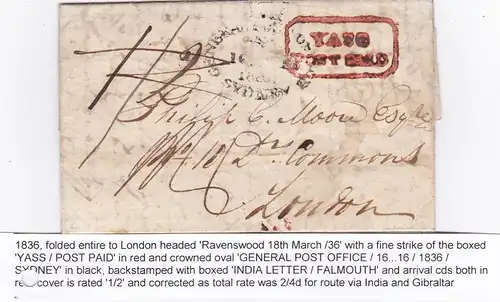 1/2
GENERAL POST OFFICE
16
1836
SYDNEY
YASS
POST PAID
Philip C. Moore Esqre
Drs Commons
London
1836, folded entire to London headed 'Ravenswood 18th March /36' with a fine strike of the boxed
'YASS / POST PAID' in red and crowned oval 'GENERAL POST OFFICE / 16...16 / 1836 /
SYDNEY' in black, backstamped with boxed 'INDIA LETTER / FALMOUTH' and arrival cds both in
re cover is rated '1/2' and corrected as total rate was 2/4d for route via India and Gibraltar